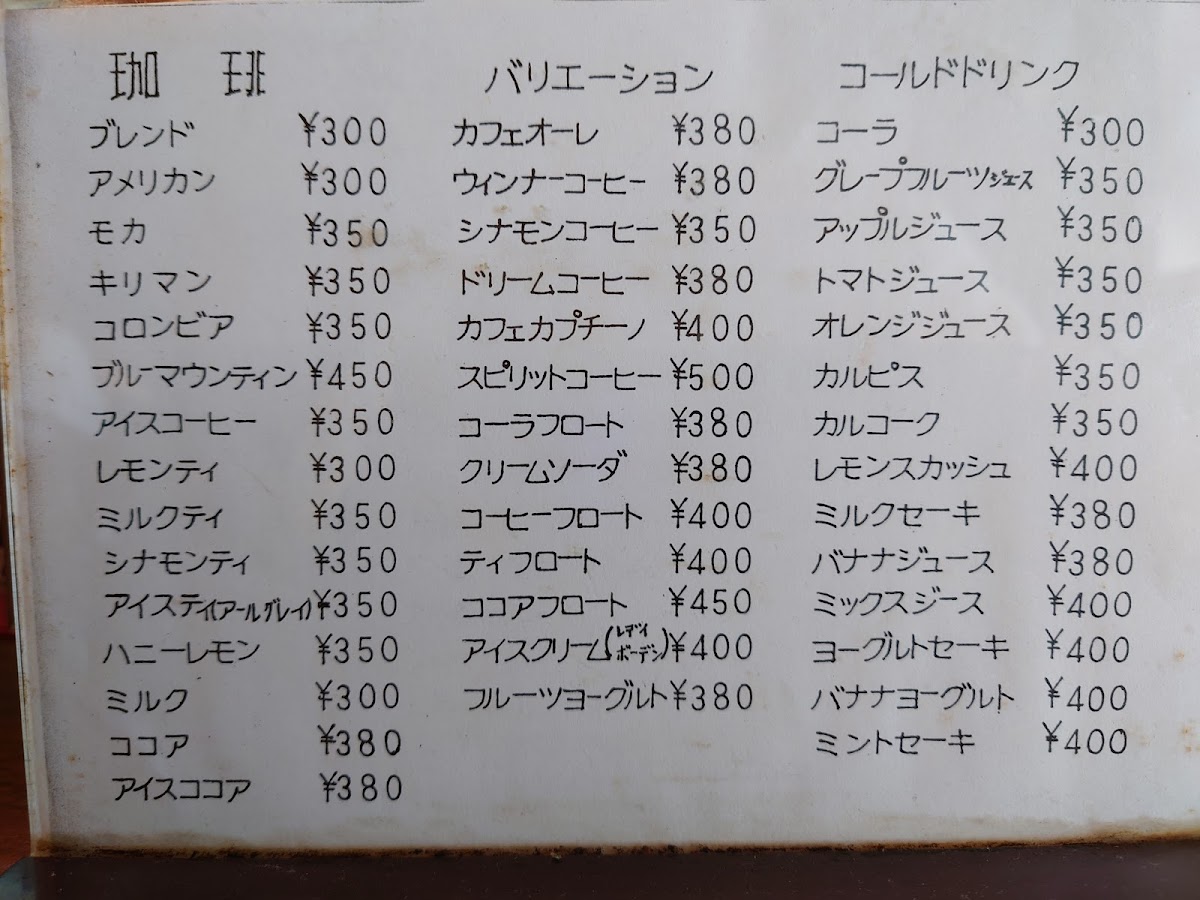 珈琲
ブレンド ¥300
アメリカン ¥300
モカ ¥350
キリマン ¥350
コロンビア ¥350
ブルーマウンティン ¥450
アイスコーヒー ¥350
レモンティ ¥300
ミルクティ ¥350
シナモンティ ¥350
アイスティ(アールグレイ) ¥350
ハニーレモン ¥350
ミルク ¥300
ココア ¥380
アイスココア ¥380
バリエーション
カフェオーレ ¥380
ウィンナーコーヒー ¥380
シナモンコーヒー ¥350
ドリームコーヒー ¥380
カフェカプチーノ ¥400
スピリットコーヒー ¥500
コーラフロート ¥380
クリームソーダ ¥380
コーヒーフロート ¥400
ティフロート ¥400
ココアフロート ¥450
アイスクリーム(レディボーデン) ¥400
フルーツヨーグルト ¥380
コールドドリンク
コーラ ¥300
グレープフルーツジュース ¥350
アップルジュース ¥350
トマトジュース ¥350
オレンジジュース ¥350
カルピス ¥350
カルコーク ¥350
レモンスカッシュ ¥400
ミルクセーキ ¥380
バナナジュース ¥380
ミックスジース ¥400
ヨーグルトセーキ ¥400
バナナヨーグルト ¥400
ミントセーキ ¥400